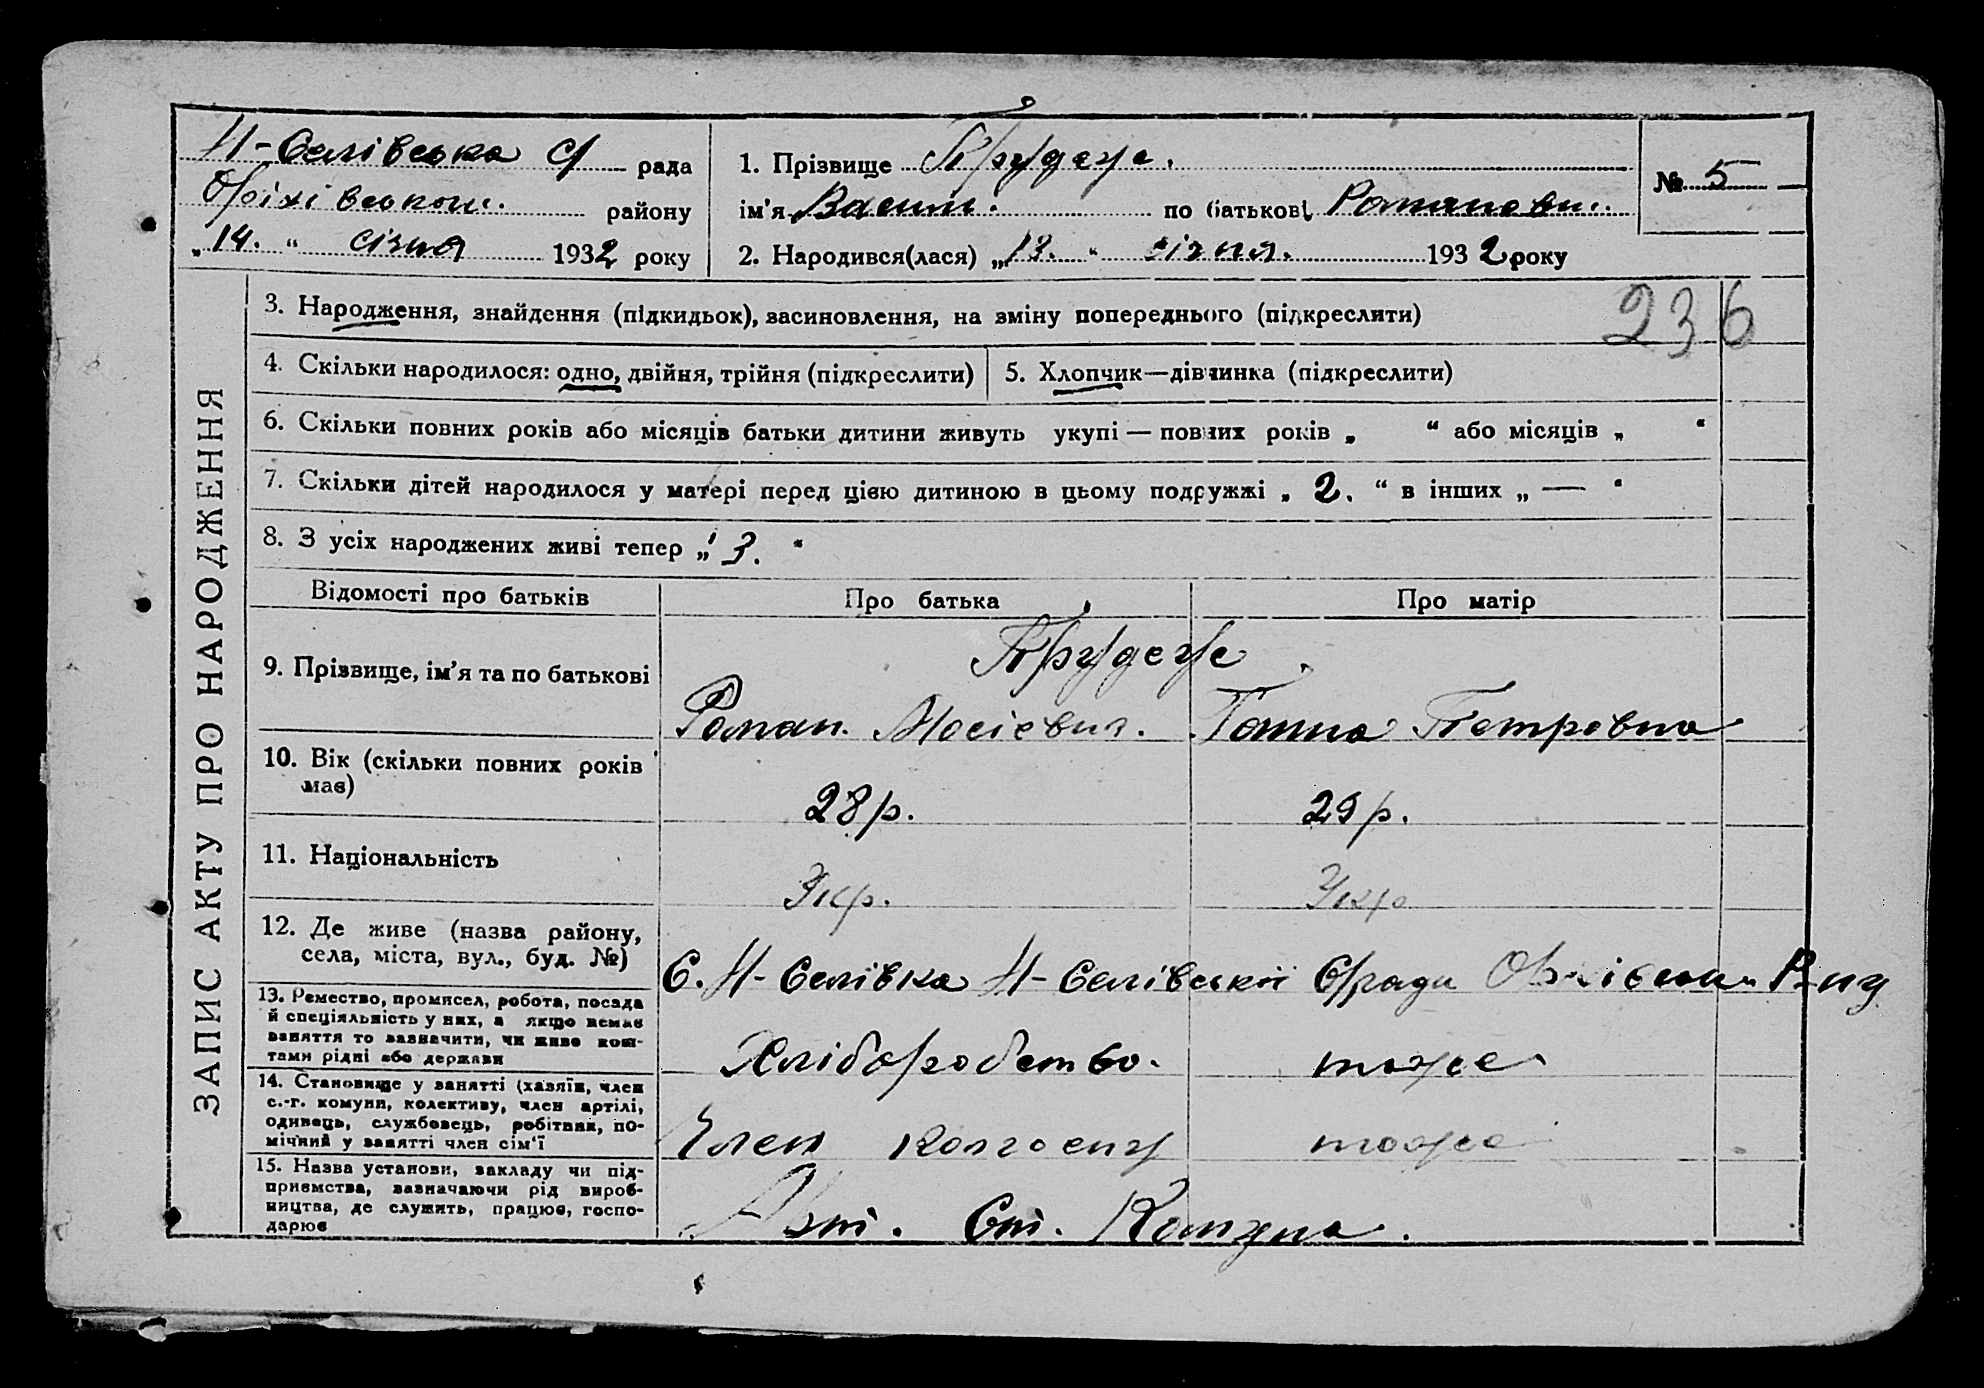 Н-Селівська С/ рада
Оріхівськои. району
„14. “ січня 1932 року
1. Прізвище
ім'я Васил. по батькові Романович.
2. Народився(лася) „13. “ січня. 1932 року
№ 5
236
ЗАПИС АКТУ ПРО НАРОДЖЕННЯ
3. Народження, знайдення (підкидьок), засиновлення, на зміну попереднього (підкреслити)
4. Скільки народилося: одно, двійня, трійня (підкреслити)
5. Хлопчик—дівчинка (підкреслити)
6. Скільки повних років або місяців батьки дитини живуть укупі — повних років „ “ або місяців „ “
7. Скільки дітей народилося у матері перед цією дитиною в цьому подружжі „ 2. “ в інших „ — “
8. З усіх народжених живі тепер „ 3. “
Відомості про батьків
Про батька
Про матір
9. Прізвище, ім'я та по батькові
Роман. Мосієвич. Ганна Петровна
10. Вік (скільки повних років
має)
28 р. 29 р.
11. Національність
Укр. Укр.
12. Де живе (назва району,
села, міста, вул., буд. №)
С. Н-Селівка Н-Селівської С/ради Р-ну
13. Ремество, промисел, робота, посада
й спеціяльність у них, а якщо немає
заняття то зазначити, чи живе кош-
тами рідні або держави
Хліборобство. тоже
14. Становище у занятті (хазяїн, член
с.-г. комуни, колективу, член артілі,
одинець, службовець, робітник, по-
мічний у занятті член сім'ї
Член колгоспу тоже
15. Назва установи, закладу чи під-
приємства, зазначаючи рід вироб-
ництва, де служить, працює, госпо-
дарює
Арт. Ст. Комуна.